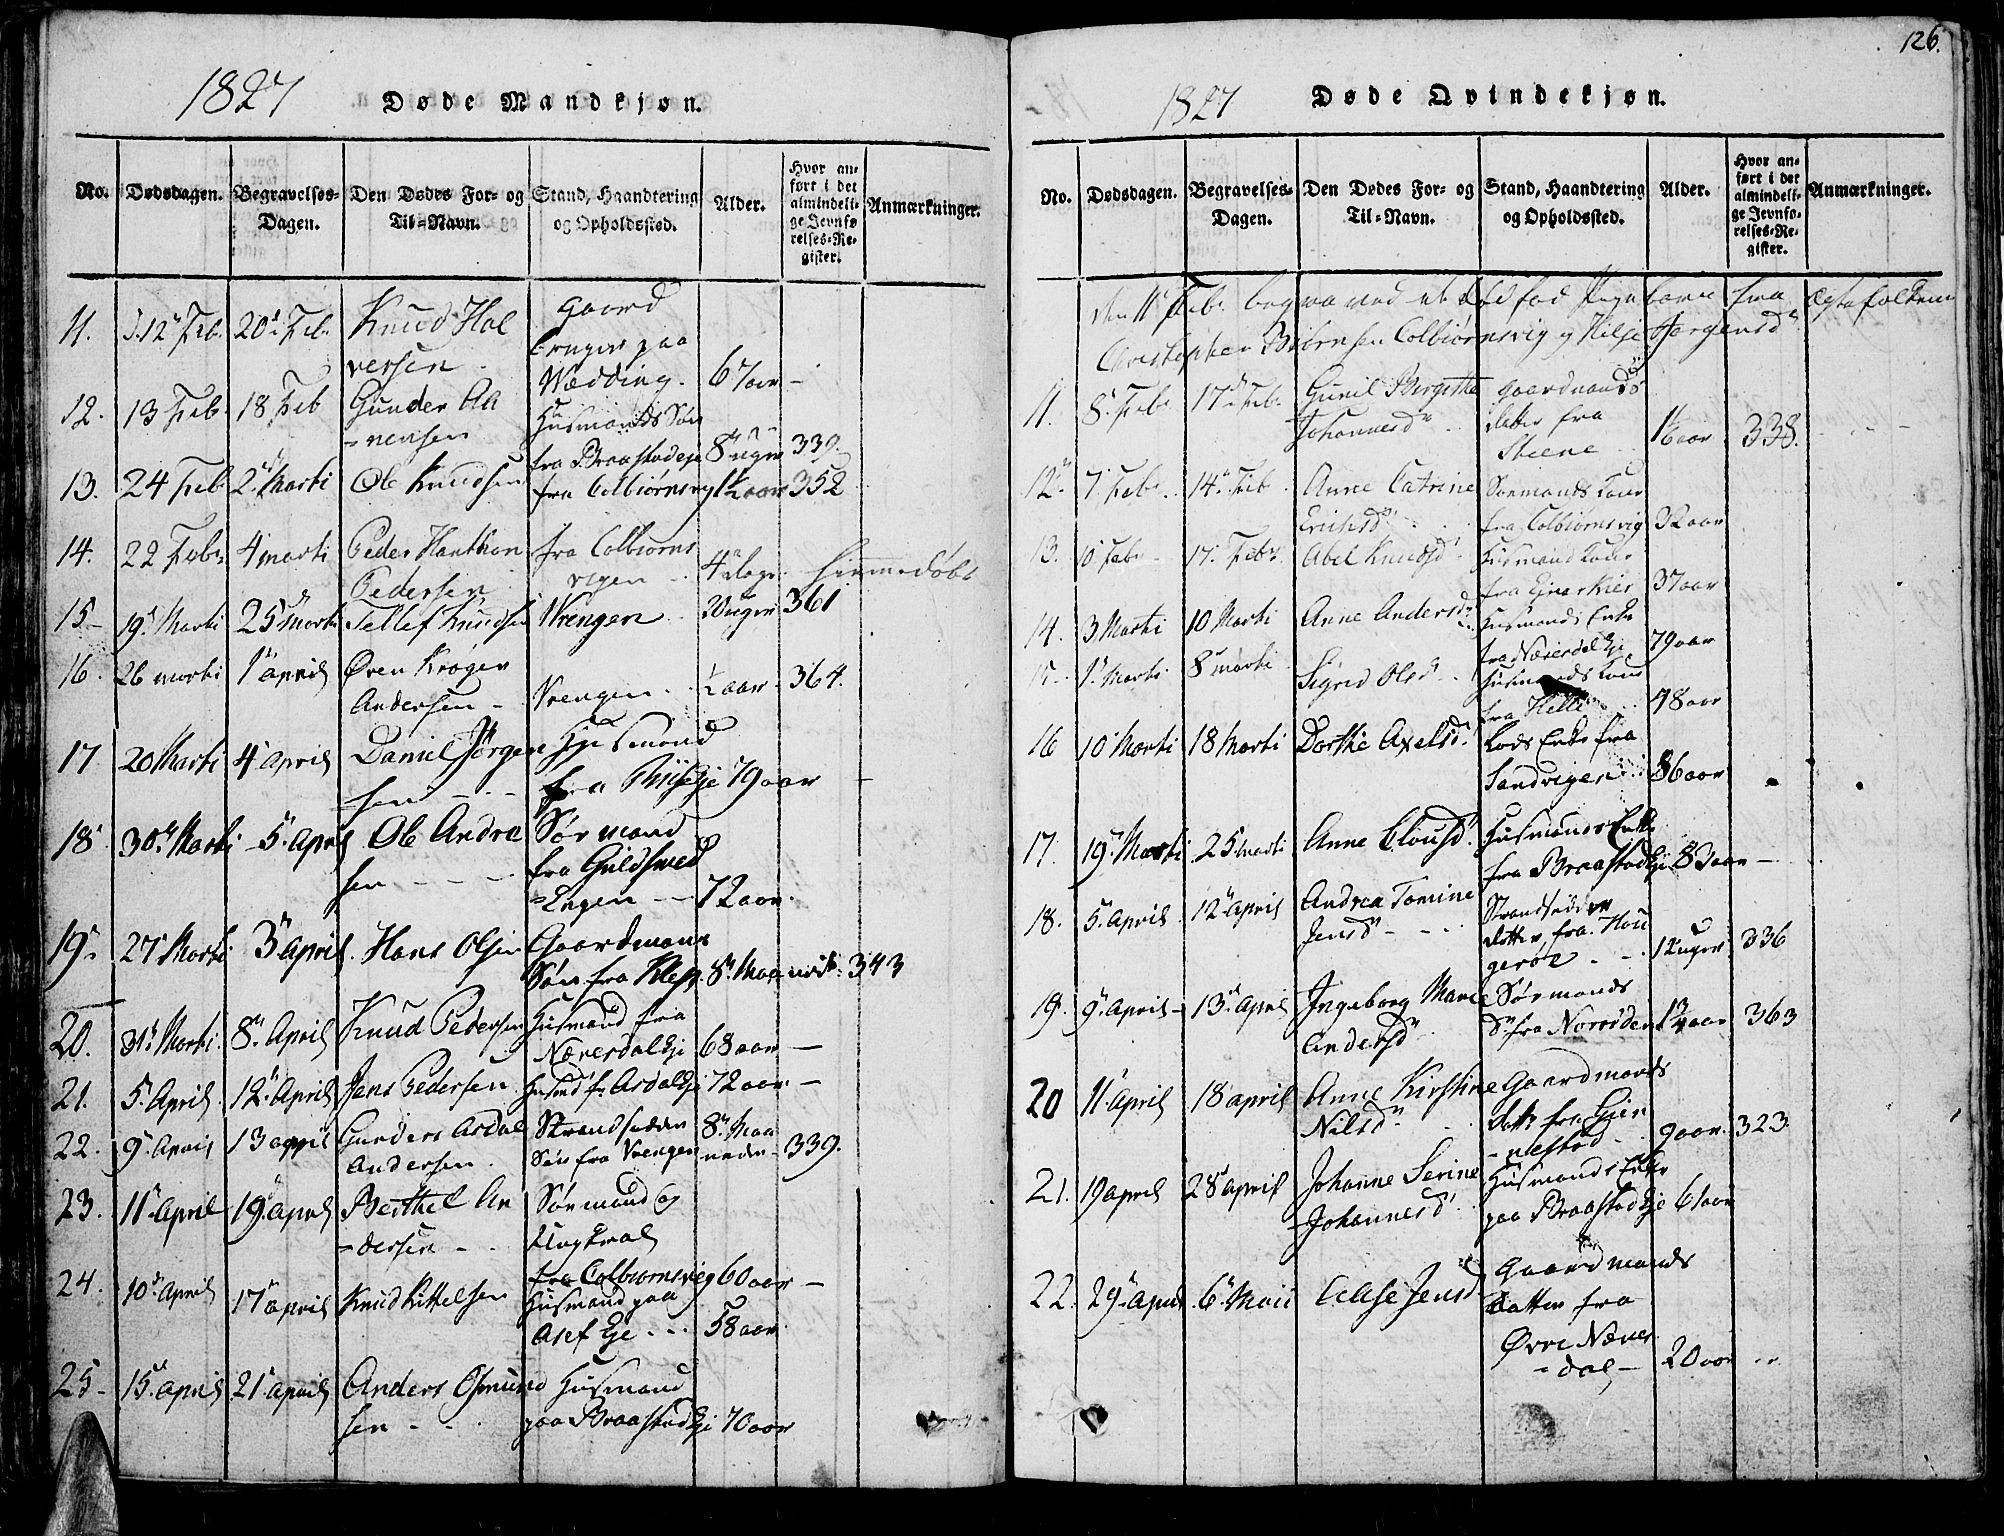 1827 Døde Mandkjøn.
No. Dødsdagen. Begravelses-Dagen. Den Dødes For- og Til-Navn. Stand, Haandtering og Opholdssted. Alder. Hvor anført i det almindelige Jevnførelses-Register. Anmærkninger.
11. d. 12 Feb. 20 Feb. Knud Hal Gaard
versen bruger paa
Wedding. 67 aar –
12. 13 Feb. 18 Feb Gunder Aa Husmands Søn
=nensen fra Braastadeje 8 uger 339.
13. 24 Feb 2 Marti Ole Knudsen fra Colbiørnsvig 1½ aar 352
14. 22 Feb. 4 marti Peder Hanthon fra Colbiørns
Pedersen vigen 4 Dage hiemmedøbt
15 19 Marti 25 marti Tellef Knudsen Vrengen 20 uger 361
16. 26 marti 1 april Øren Krøger
Andersen – Vrengen ½ aar 364.
17 20 Marti 4 April Daniel Jørgen Husmand
sen fra Riiseje 79 aar –
18 30 Marti 5 April Ole Andra Sørmand
sen fra Guldsmed
=Engen – 72 aar.
19 27 Marti 3 april. Hans Olsen Gaardmans
Søn fra Klep. 8 Maaneder 343
20. 31 Marti. 8 April Knud Pedersen Husmand fra
Næverdal Eje 68 aar –
21. 5 April 12 April Jens Pedersen Husmd. f. Asdal Eje 72 aar –
22. 9 April 13 april Gunders Asdal Strandsidder 8 Maa
Andersen. Søn fra Vrengen neder 339.
23. 11 April 19 april Berthel An Sørmand og
=dersen – Ungkarl
fra Colbiørnsvig 60 aar –
24. 10 April 17 april Knud Kittelsen Husmand paa
Asef Eje 58 aar
25 15 april 21 april Anders Osmund Husmand
sen paa Braastad Eje 70 aar
126.
1827 Døde Qvindekjøn.
No. Dødsdagen. Begravelses-Dagen. Den Dødes For- og Til-Navn. Stand, Haandtering og Opholdssted. Alder. Hvor anført i det almindelige Jevnførelses-Register. Anmærkninger.
den 11 Feb. begraved et død fød Pigebarn fra Ægtefolkene
Christopher Biørnsen Colbiørnsvig og Helje Jørgensd
11. 8 Feb. 17 Feb. Gunil Bergitte Gaardmands
Johannesd datter fra
Steene 338.
12. 7 Feb. 14 Feb Anne Catrine Sørmands Kone
Erichsd fra Colbiørnsvig 32 aar
13. 10 Feb. 17 Feb. Abel Knudsd Husmand Kone
37 aar
14. 3 Marti 10 Marti Anne Andersd Husmands Enke
fra Næverdal Eje 79 aar
15. 1 Marti 8 marti Sigred Olsd Husmands Kone
fra Helle 48 aar
16 10 Marti 18 Marti Dorthe Axelsd Lods Enke fra
Sandvigen 86 aar
17. 19 Marti 25 marti Anne Clousd Husmands Enke
fra Braastad Eje 83 aar –
18. 5 april 12 april Andrea Tomine Strandsidder
Jensd – datter fra Hou
gerøe 12 uger 336
19. 9 April – 13 April Ingeborg Marie Sørmands
Andersd D. fra Norødden 1¼ aar 363
20 11 April 18 april Anne Kirstine Gaardmands
Nilsd Datt. fra Gier
=nestad 9 aar. 323.
21. 19 april 28 april Johanne Serine Husmands Enke
=Johannesd paa Braastad Eje 61 aar
22. 29 April 6 Maii Aase Jensd Gaardmands
Datter fra
Øvre Næver
=dal – 20 aar